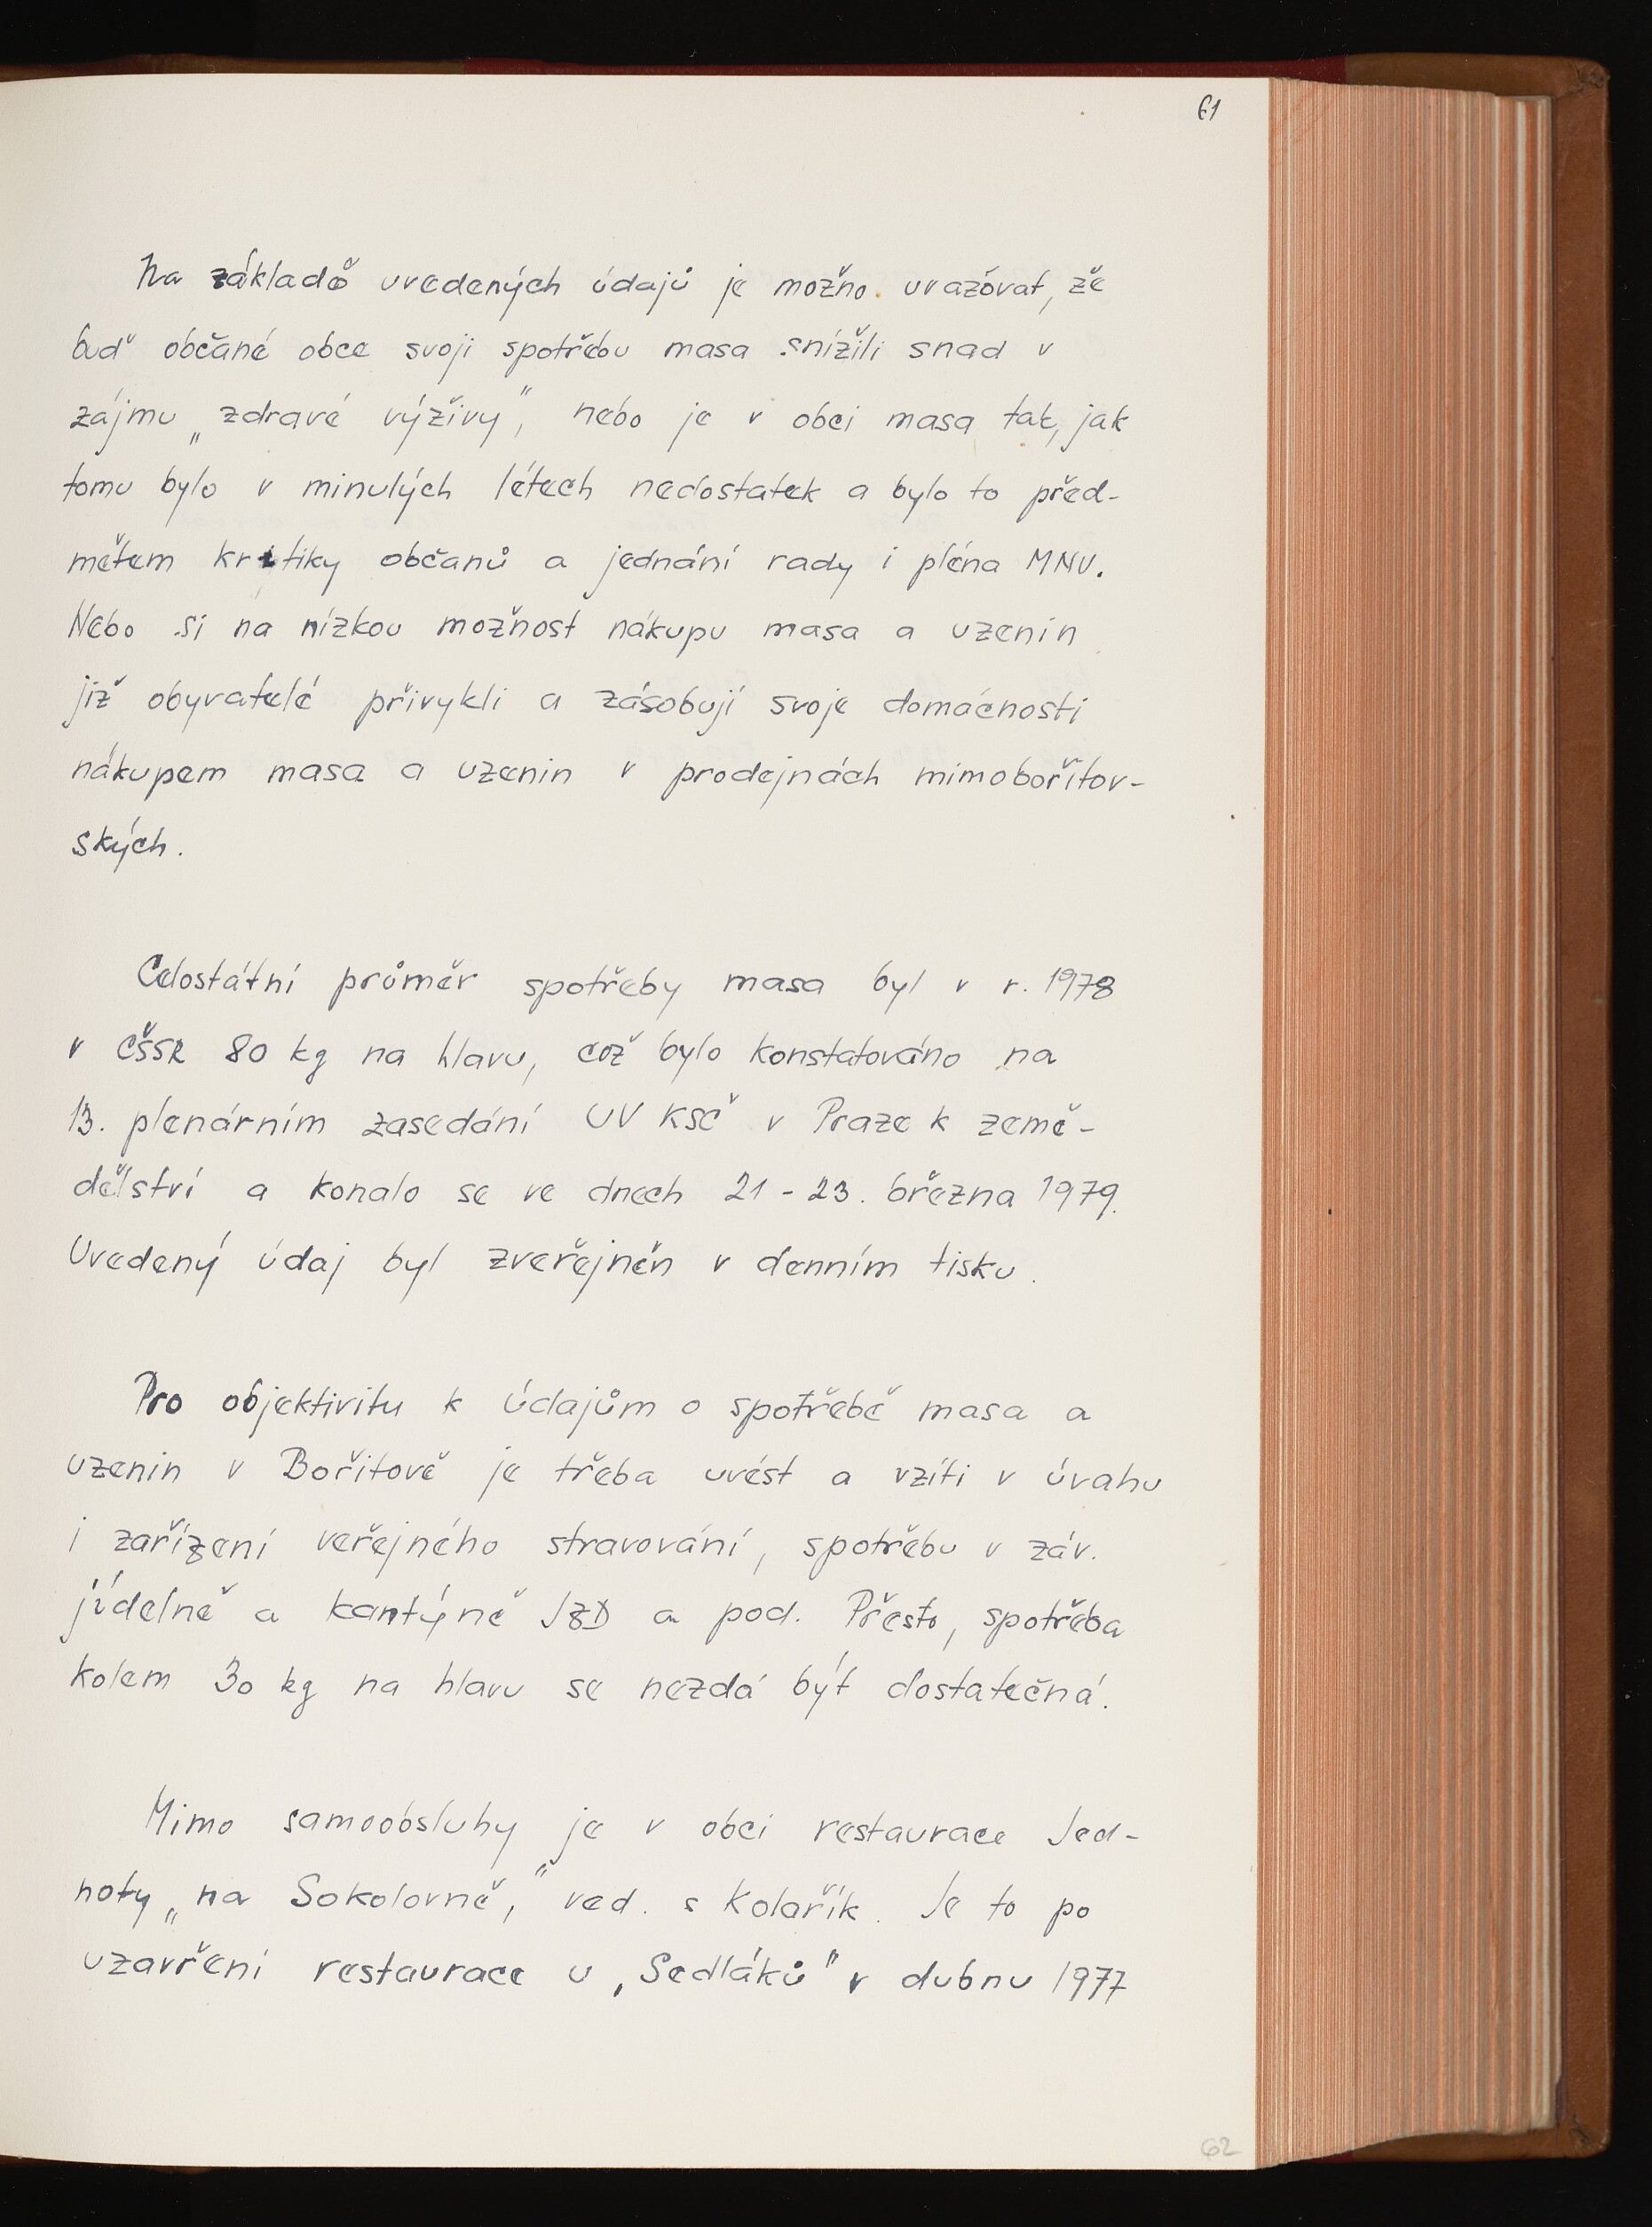 61
Na základě uvedených údajů je možno uvažovat, že
buď občané obce svoji spotřebu masa snížili snad v
zájmu „zdravé výživy", nebo je v obci masa tak, jak
tomu bylo v minulých létech nedostatek a bylo to před-
mětem kritiky občanů a jednání rady i pléna MNV.
Nebo si na nízkou možnost nákupu masa a uzenin
již obyvatelé přivykli a zásobují svoje domácnosti
nákupem masa a uzenin v prodejnách mimobořitov-
ských.
Celostátní průměr spotřeby masa byl v r. 1978
v ČSSR 80 kg na hlavu, což bylo konstatováno na
13. plenárním zasedání UV KSČ v Praze k země-
dělství a konalo se ve dnech 21 - 23. března 1979.
Uvedený údaj byl zveřejněn v denním tisku.
Pro objektivitu k údajům o spotřebě masa a
uzenin v Bořitově je třeba uvést a vzíti v úvahu
i zařízení veřejného stravování, spotřebu v záv.
jídelně a kantýně JZD a pod. Přesto, spotřeba
kolem 30 kg na hlavu se nezdá být dostatečná.
Mimo samoobsluhy je v obci restaurace Jed-
noty „na Sokolovně," ved. s Kolařík. Je to po
uzavření restaurace u „Sedláků" v dubnu 1977
62